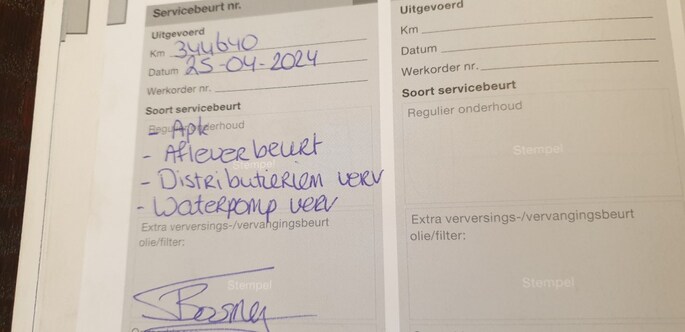 Servicebeurt nr.
Uitgevoerd
Km 344640
Datum 25-04-2024
Werkorder nr.
Soort servicebeurt
Regulier onderhoud
- Apk
- Afleverbeurt
- Distributieriem verv
- Waterpomp verv
Stempel
Extra verversings-/vervangingsbeurt
olie/filter:
Stempel
Uitgevoerd
Km
Datum
Werkorder nr.
Soort servicebeurt
Regulier onderhoud
Stempel
Extra verversings-/vervangingsbeurt
olie/filter:
Stempel